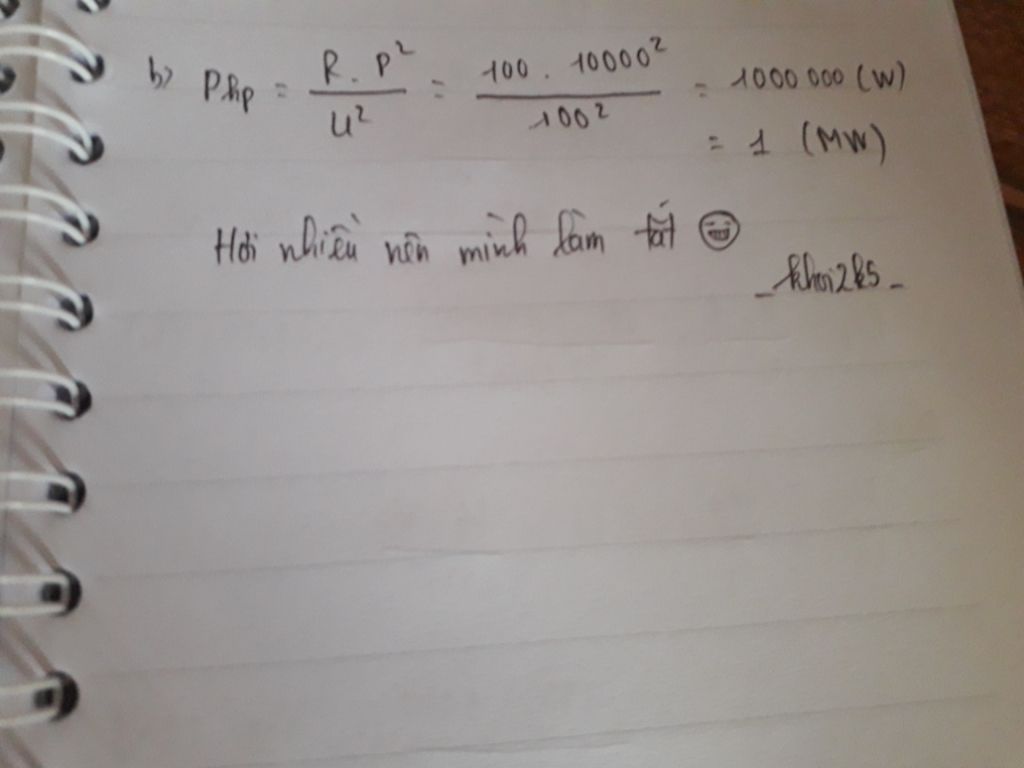 b) Php = R . P² / U² = 100 . 10000² / 100² = 1000 000 (W)
= 1 (MW)
Hơi nhiều nên mình làm tắt
_khoi2k5_